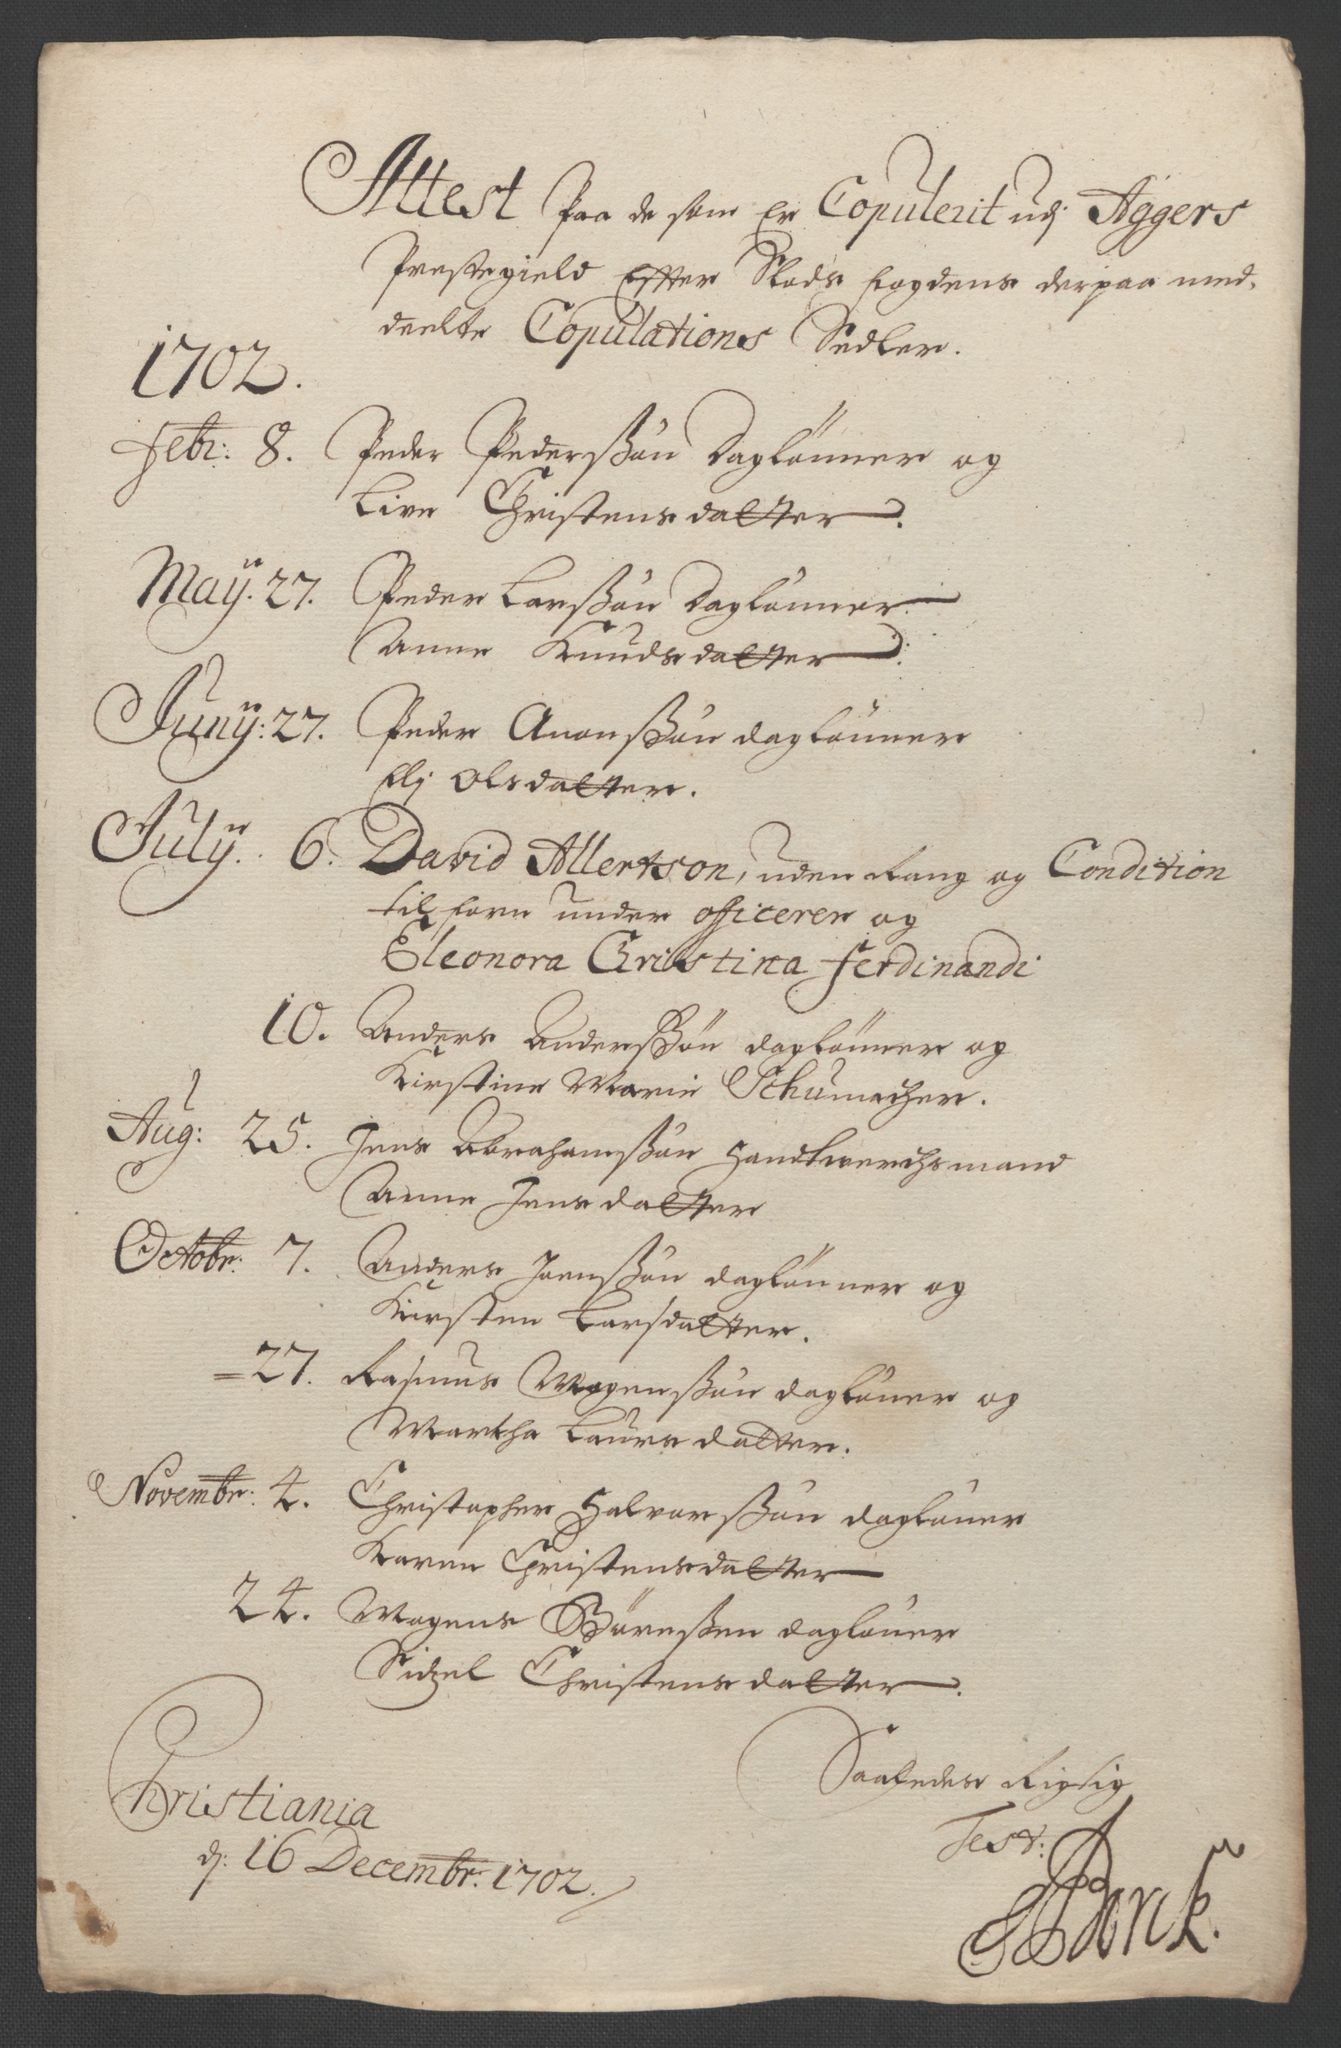 Attest Paa de som Er Copulerit udj Aggers
Prestegield Effter Slods fogdens derpaa med,
deelte Copulations Sedler.
1702.
Febr: 8. Peder Pederssøn Daglønner og
Live Christensdatter.
Maÿ. 27. Peder Larssøn Daglønner
Anne Knudsdatter.
Junÿ: 27. Peder Anonssøn daglønner
Elj Olsdatter.
Julÿ. 6. David Allertson, uden Rang og Condition
tilforn under officerer og
Eleonora Christina Ferdinandi
10. Anders Anderssøn daglønner og
Kirstine Marie Schumacher.
Aug: 25. Jens Abrahamssøn Handtwerchsmand
Anne Jensdatter
Octobr: 7. Anders Joenssøn daglønner og
Kirsten Larsdatter.
=27. Rasmus Mogenssøn dagløner og
Martha Lauresdatter.
Novembr: 4. Christopher Halvorssøn dagløner
Karen Christensdatter
24. Mogens Børessen dagløner
Sidzel Christensdatter.
Saaledes Rigtig
Christiania Test:
dj: 16 Decembr: 1702.
Borck.